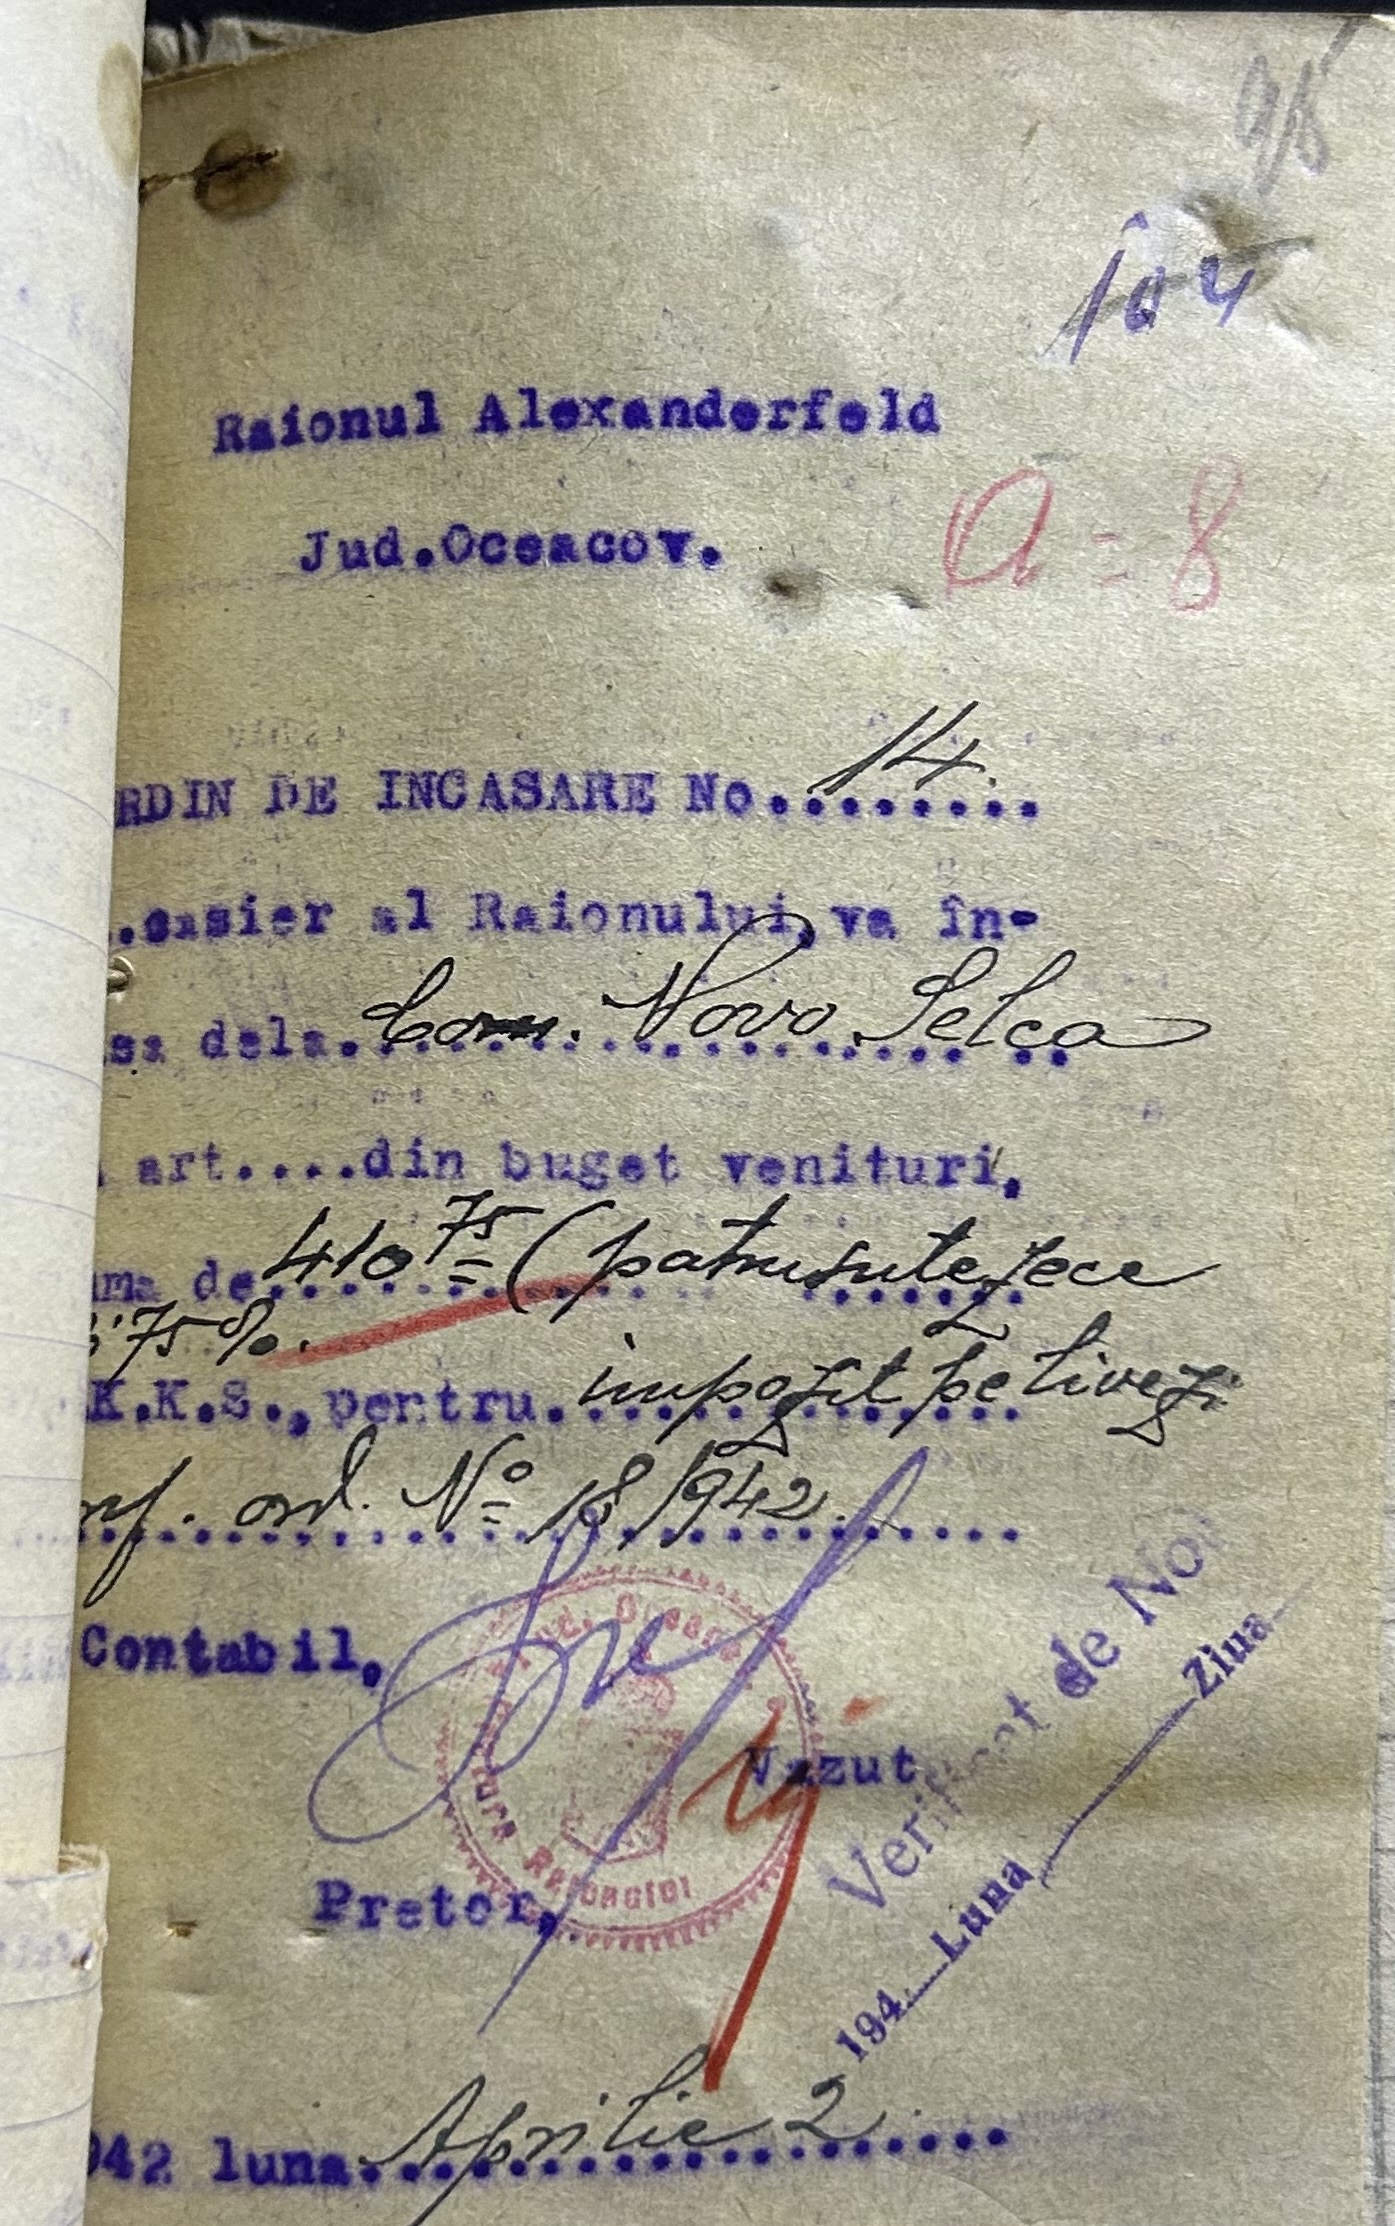 98
104
Raionul Alexanderfeld
a = 8
Jud.Oceacov.
RDIN DE INCASARE No. 14.
.casier al Raionului, va în-
sa dela. Com. Novo Selca
art....din buget venituri,
ma de 410 75 = (patrusute zece
75%.
K.K.S., pentru. impozit pe livezi
nf. ord. No 18/942.
Contabil,
Jud. Oceacov
tura Raionului
Vazut
Verificat de Noi
194 Luna Ziua
Pretor,
942 luna Aprilie 2.